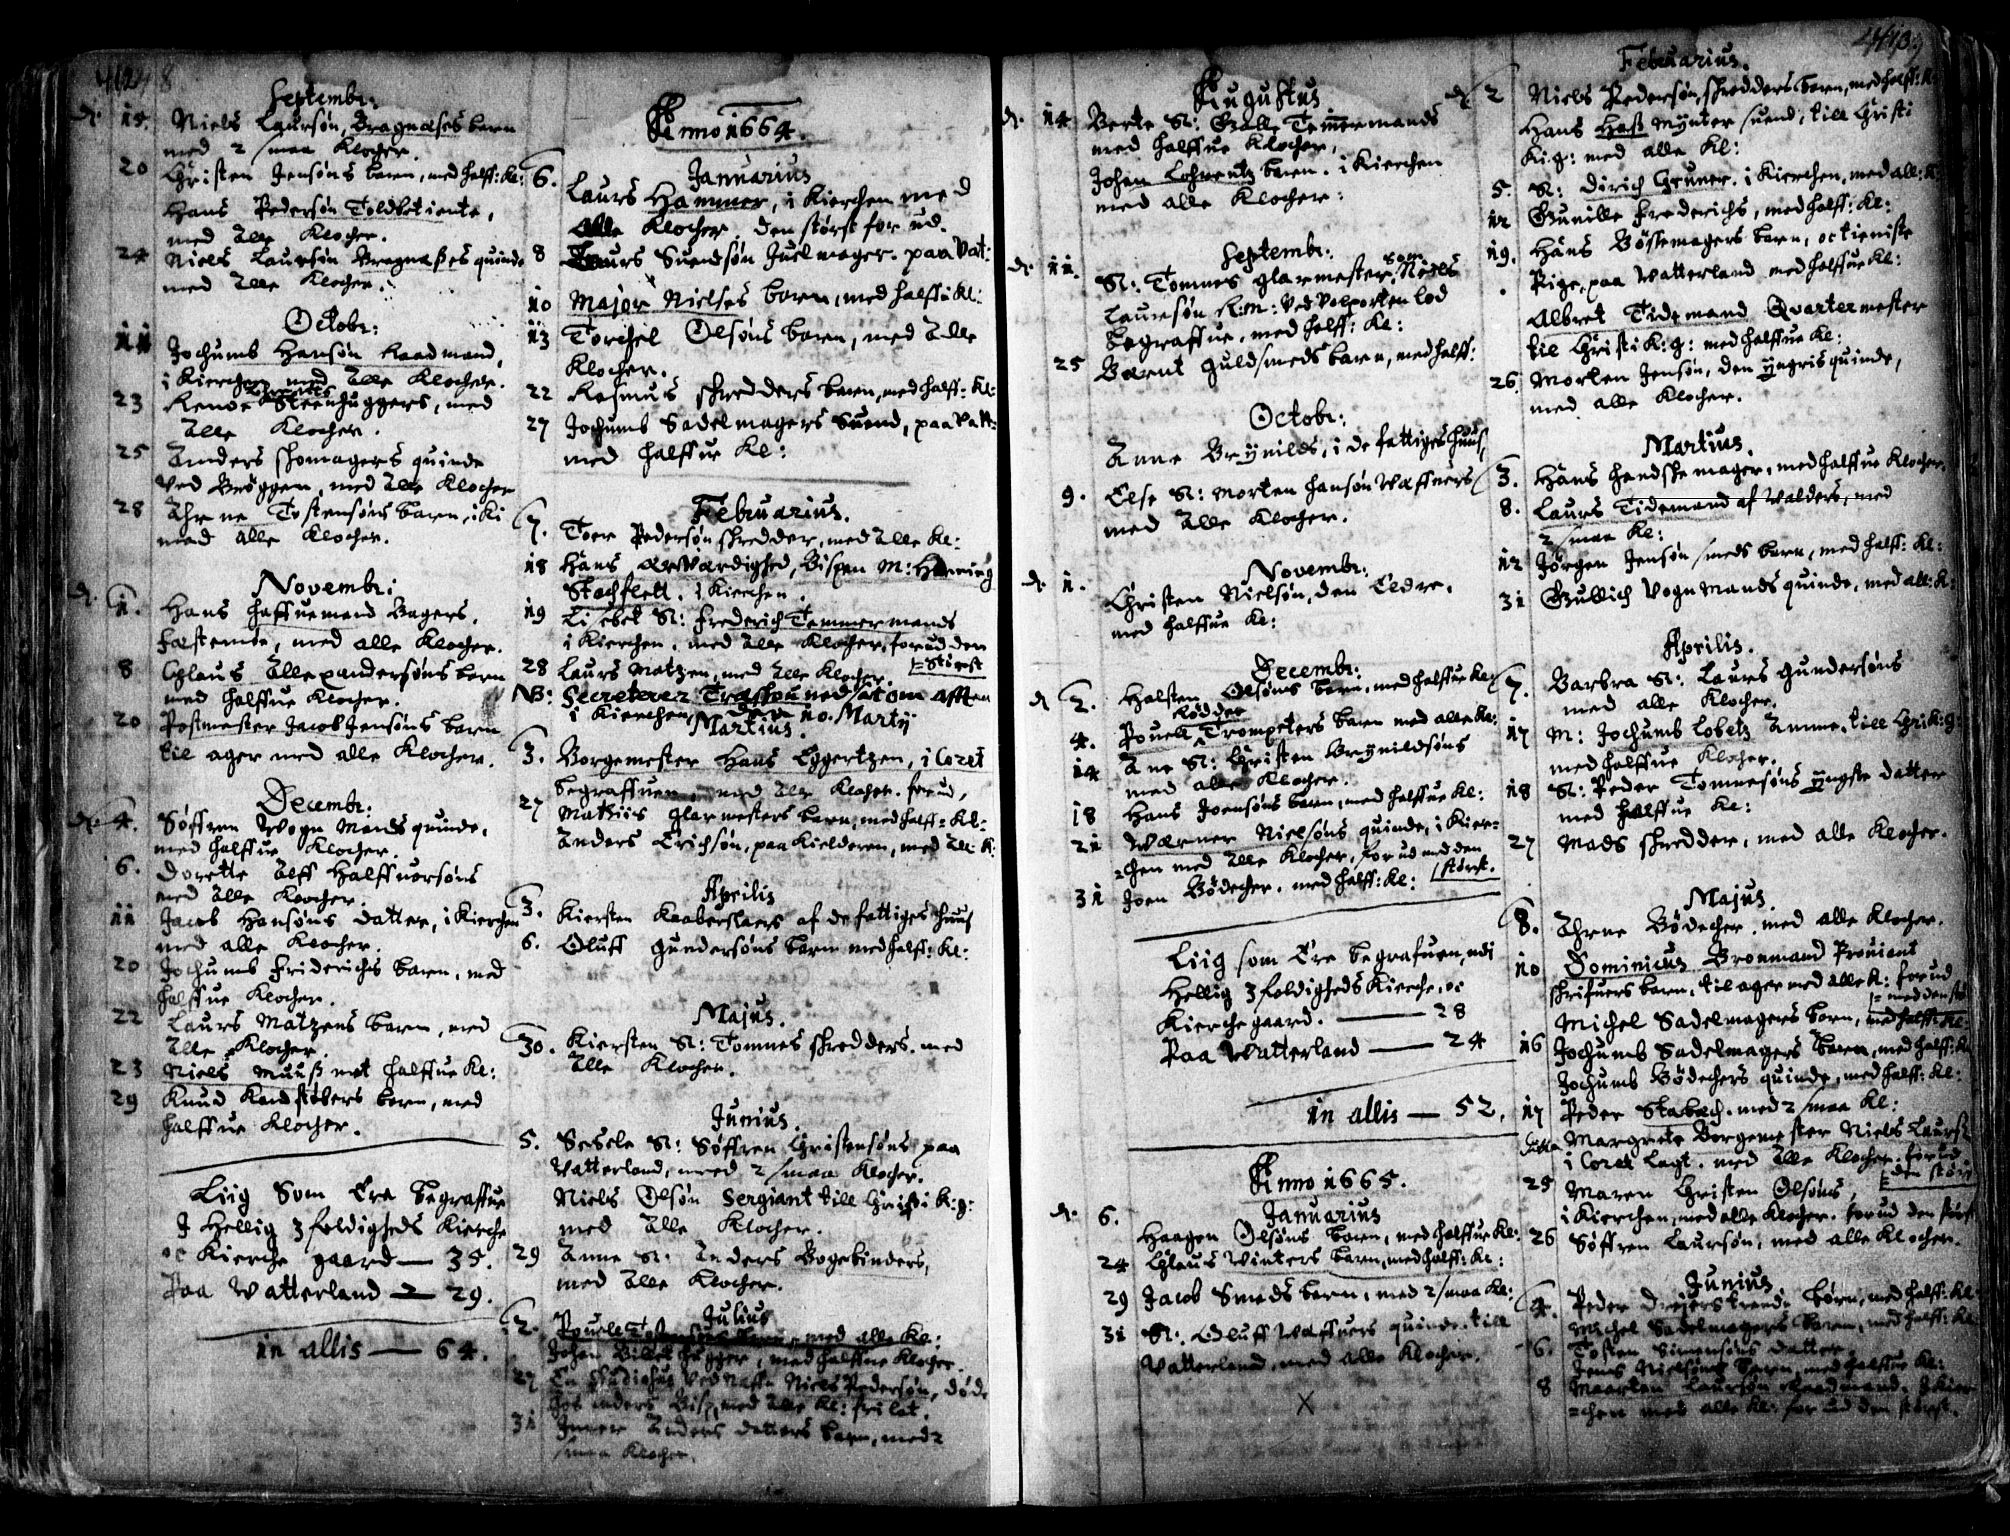 Septembr:
d. 15. Niels Laursøn, Bragnæses barn
med 2 smaa Klocher.
20 Christen Jensøns barn, med halff: Kl:
Hans Pedersøn Toldbetiente,
med alle Klocher.
24 Niels Laursøn Bragnæses quinde
med alle Klocher.
Octobr:
11 Jochumb Hansøn Raadmand,
i Kierchen med alle Klocher.
23 Steenhuggers, med
alle Klocher.
25 Anders skomagers quinde
ved Brøggen, med alle Klocher
28 Ahrne Tostensøns barn, i Ki
med alle Klocher.
Novembr:
d. 1. Hans haffuemand Bagers,
festemøe, med alle Klocher.
8 Claus Allexandersøns barn
med halffue Klocher.
20 Postmester Jacob Jensøns barn
til ager med alle Klocher.
Decembr:
d. 4. Søffren Wogn Mands quinde,
med halffue Klocher.
6. Dorette Alff Halffuorsøns
med alle Klocher.
11 Jacob Hansøns datter, i Kierchen
med alle Klocher.
20 Jochumb Friderichs barn, med
halffue Klocher.
22 Laurs Matzens barn, med
alle Klocher.
23 Niels Muuß met halffue Kl:
29 Knud Kandstøbers barn, med
halffue Klocher.
Liig Som Ere begraffue
J Hellig 3foldigheds Kierche
oc Kierche gaard — 35.
Paa Watterland — 29.
in allis — 64.
Anno 1664.
Januarius
6. Laurs Hammer, i Kierchen med
alle Klocher den størst for ud.
8 Laurs Suendsøn Juelmager. paa Vat:
10 Major Nielses barn, med halffu: Kl:
13 Torchel Olsøns barn, med alle
Klocher.
22 Rasmus skredders barn, med halff: Kl:
27 Jochumb Sadelmagers Suend, paa Vatt:
med halffue Kl:
Februarius.
7. Toer Pedersøn skredder, med alle Kl:
18 Hans ærværdighed, Bispen M: Henning
Stochflett. i Kierchen.
19 Lisebet Sl: Frederich Temmermands
i Kierchen, med alle Klocher, forud den
størst
28 Laurs Matzen, med alle Klocher.
NB: Secreterer afften
i Kierchen, den 10. Martij
Martius.
3. Borgemester Hans Eggertzen, i Coret
begraffuen, med alle Klocher. forud,
27 Mathiis glarmesters barn, med halff: Kl:
Anders Erichsøn, paa Kielderen, med all: K:
Aprilis
3. Kiersten Kaaberslaers af de fattiges huus
6. Oluff gundersøns barn med halff: Kl:
Majus.
30. Kiersten Sl: Tomnes skredders. med
alle Klocher.
Junius.
5. Sesele Sl: Søffren Christensøns paa
Vatterland, med 2 smaa Klocher.
Niels Olsøn Sergiant till Christi K: g:
med alle Klocher.
29 Anne Sl: Anders Bogebinders,
med alle Klocher.
Julius
2. med alle Kl:
Johan Billedhugger, med halffue Klocher.
27 En Studiosus ved naffn Niels Pedersøn, døde
hos anders Bisp, med alle Kl: fri let.
31 Anders datters barn, med 2
smaa Klocher.
Augustus
d. 14 Berte Sl: Halle Temmermands
med halffue Klocher,
Johan Lohrentz barn. i Kierchen
med alle Klocher:
Septembr:
d. 11. Sl: Tomnes glarmester, som Niels
Laursøn R: M: ved Volporten lod
begraffue, med halff: Kl:
25 Bernt guldsmeds barn, med halff:
Octobr:
Anne Brynilds, i de fattiges huus,
9. Else Sl: Morten Hansøn Waffuers
med alle Klocher.
Novembr:
d. 1. Christen Nielsøn, den Eldre.
med halffue Kl:
Decembr:
d 2. Halsten Olsøns barn, med halffue Kl:
Rødder
4. Pouell Trompeters barn med alle Kl:
14 Ane Sl: Christen Brynildsøns
med alle Klocher.
18 Hans Joensøns barn, med halffue Kl:
21 Werner Nielsøns quinde, i Kier=
=chen med alle Klocher, forud med den
størst.
31 Joen Bødecher. med halff: Kl:
Liig som Ere begrafuen, udi
Hellig 3foldigheds Kierche, oc
Kierche gaard. — 28
Paa Watterland — 24
in allis — 52.
Anno 1665.
Januarius
d. 6. Haagen Olsøns barn, med halffue Kl:
24 Claus Winters barn, med halff: Kl:
29 Jacob Smeds barn, med 2 smaa Kl:
31 Sl: Oluff Waffuers quinde. till
Watterland, med alle Klocher.
X
Februarius.
d. 2 Niels Pedersøn, skredders barn, med halff: K:
Hans Haß Mynter suend, till Christi
Ki: g: med alle Kl:
5. Sl: Dirich Gruner. i Kierchen, med all: K:
12 Gunille Frederichs, med halff: Kl:
19. Hans Bøssemagers barn, oc tieniste
Pige, paa Watterland med halffue Kl:
Albret Tidemand Quartermester
til Christi K: g: med halffue Kl:
26. Morten Jensøn, den yngris quinde,
med alle Klocher.
Martius.
3. Hans handskemager, med halffue Klocher.
8. Laurs Tidemand af Walders, med
2 smaa Kl:
12 Jørgen Jensøn smeds barn, med halff: Kl:
31 Gullich Wognmands quinde, med all: K:
Aprilis.
7. Barbra Sl: Laurs gundersøns
med alle Klocher.
17 M: Jochumb Lobetz Amme, till Chri K: g:
med halffue Klocher.
18 Sl: Peder Tomnesøns yngste datter
med halffue Kl:
27 Mads skredder, med alle Klocher.
Majus.
8. Ahrne Bødecher. med alle Klocher.
10 Dominicus Bronmand Proviant
skrifuers barn, til ager med alle K: forud
med den stø
Michel Sadelmagers barn, med halff: Kl:
16 Jochumb Sadelmagers barn, med halff: Kl
Jochumb Bødechers quinde, med halff: Kl:
17 Peder Stabach. med 2 smaa Kl:
Margrete Borgemester Niels Laurß:
i Coret lagt. med alle Klocher. forud
den størst
25 Maren Christen Olsøns,
i Kierchen, med alle Klocher. forud den størst
26 Søffren Laursøn, med alle Klocher.
Junius.
4. Peder Drejers børn, med halff: Kl:
Michel Sadelmagers barn, med halff: Kl
6. Tosten Simensøns datter
Jens Nielsøns barn, med halffue Kl:
8 Maarten Laursøn Raadmand. i Kier
=chen med alle Kl: for ud den størst.